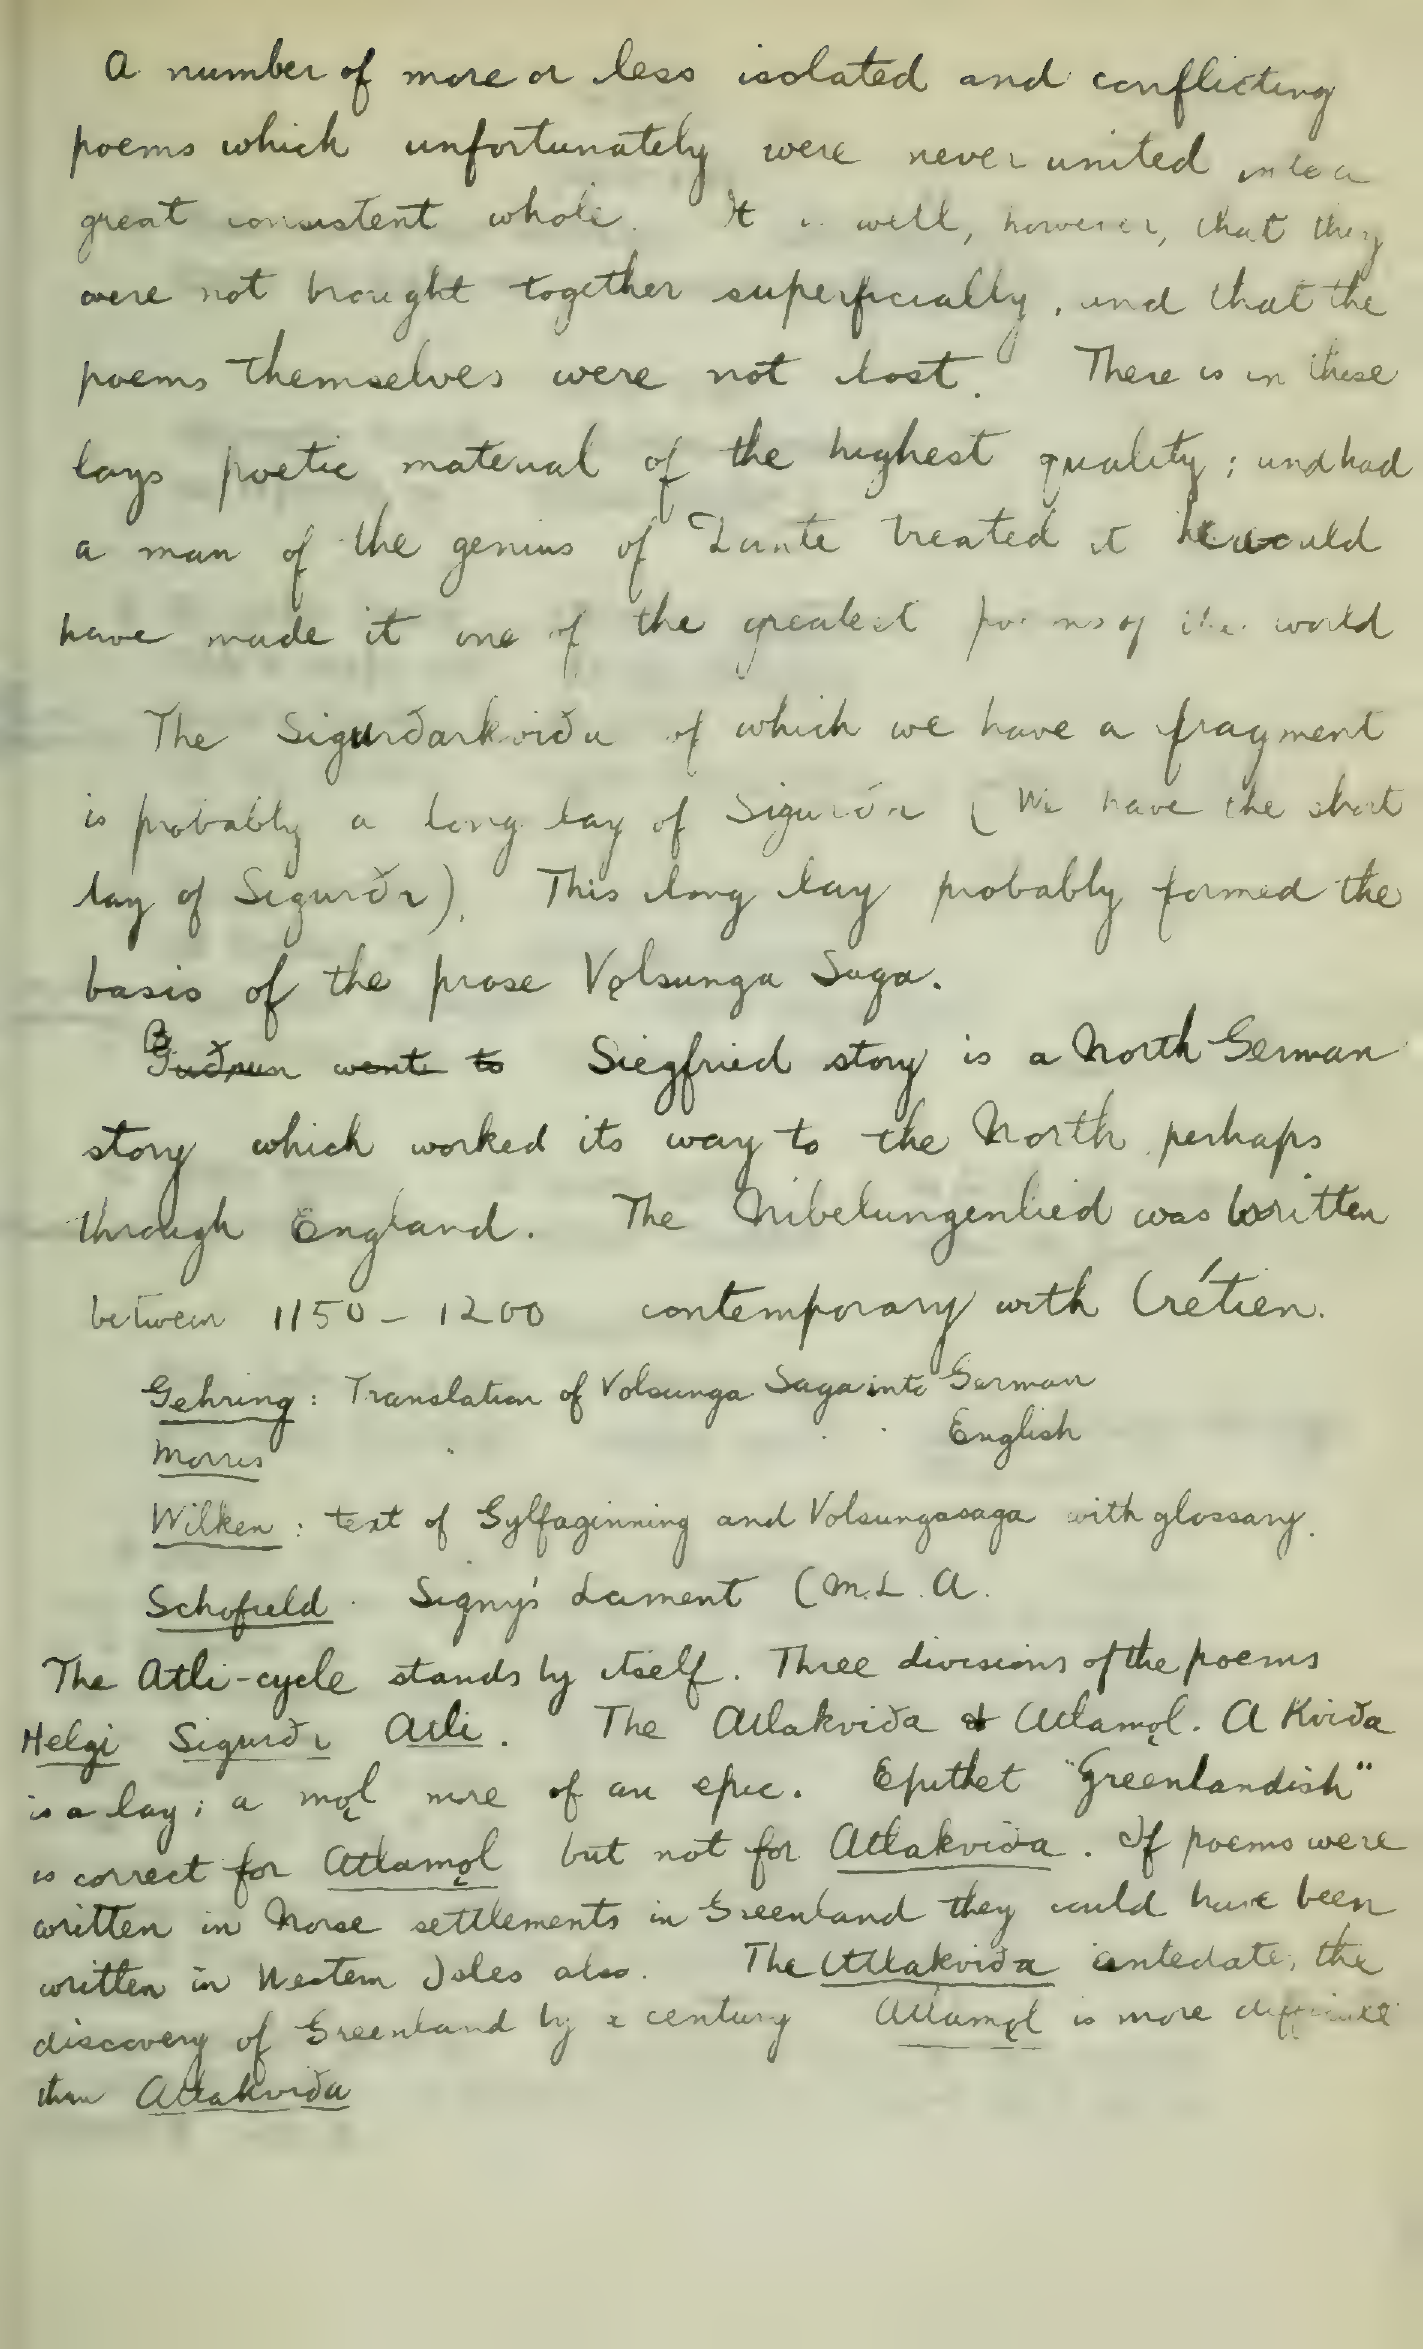 A number of more or less isolated and conflicting
poems which unfortunately were never united into a
great consistent whole. It is well, however, that they
were not brought together superficially, and that the
poems themselves were not lost. There is in these
lays poetic material of the highest quality; and had
a man of the genius of Dante treated it he would
have made it one of the greatest poems of the world
The Sigurðarkviða of which we have a fragment
is probably a long lay of Sigurðr (We have the short
lay of Sigurðr). This long lay probably formed the
basis of the prose Vǫlsunga Saga.
Guðrun went to Siegfried story is a North German
story which worked its way to the North perhaps
through England. The Nibelungenlied was written
between 1150 - 1200 contemporary with Crétien.
Gehring: Translation of Volsunga Saga into German
Morris " " " English
Wilken: text of Gylfaginning and Volsungasaga with glossary.
Schofield. Signy's Lament (M.L.A.
The Atli-cycle stands by itself. Three divisions of the poems
Helgi Sigurðr Atli. The Atlakviða & Atlamǫl. A Kviða
is a lay; a mǫl more of an epic. Epithet "Greenlandish"
is correct for Atlamǫl but not for Atlakviða. If poems were
written in Norse settlements in Greenland they could have been
written in Western Isles also. The Atlakviða antedates the
discovery of Greenland by a century Atlamǫl is more difficult
than Atlakviða